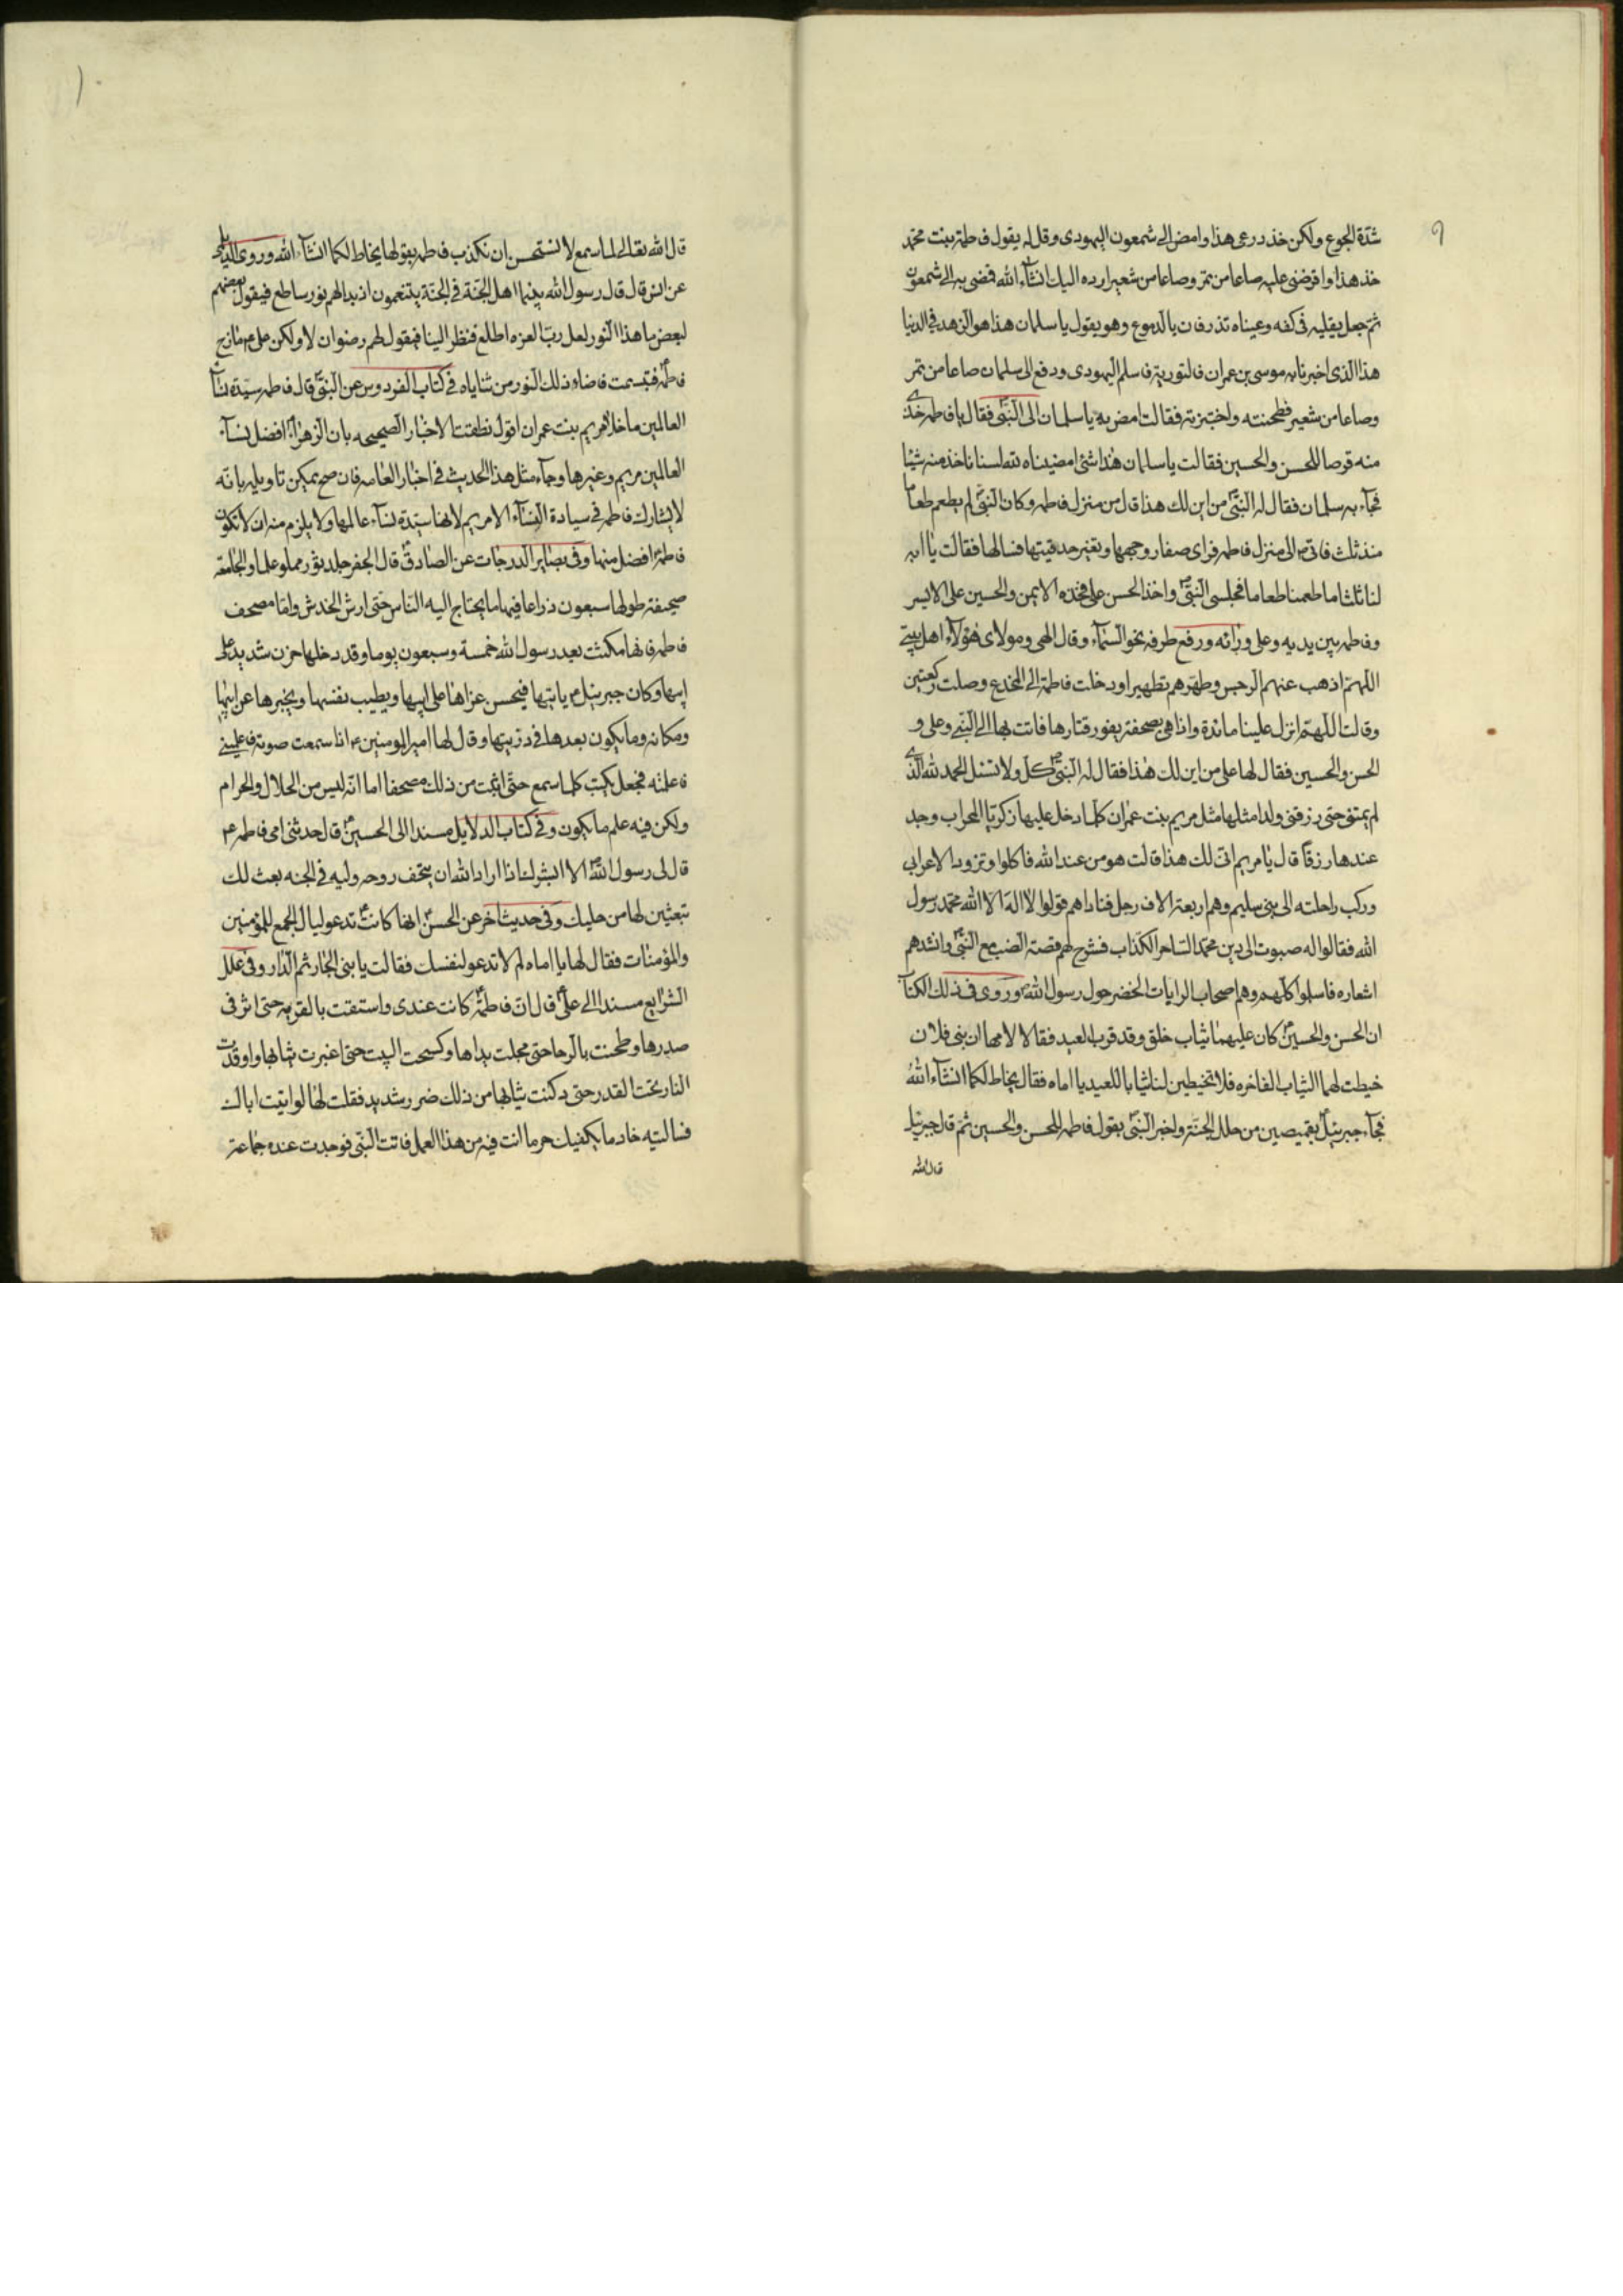 ٩
شدّة الجوع ولكن خذ درعى هذا وامض الى شمعون اليهودى وقل له يقول فاطمة بنت محمد
خذ هذا واقرضنى عليه صاعا من تمر وصاعا من شعير ارده اليك انشاء الله فمضى به الى شمعون
ثم جعل يقلبه فى كفه وعيناه تذرفان بالدموع وهو يقول يا سلمان هذا هو الزهد فى الدنيا
هذا الذى اخبرنا به موسى بن عمران فى التورية فاسلم اليهودى ودفع الى سلمان صاعا من تمر
وصاعا من شعير فطحنته واختبزته فقالت امض به يا سلمان الى النبىّ فقال يا فاطمه خذى
منه قرصا للحسن والحسين فقالت يا سلمان هذا شئ امضيناه لله لسنا ناخذ منه شيئا
فجآء به سلمان فقال له النبىّ من اين لك هذا قال من منزل فاطمه وكان النبىّ لم يطعم طعاما
منذ ثلث فاتى الى منزل فاطمه فراى صفار وجهها وتغير حدقيتها فسالها فقالت يا ابه
لنا ثلثا ما طعمنا طعاما فجلس النبىّ واخذ الحسن على فخذه الايمن والحسين على الايسر
وفاطمه بين يديه وعلى ورائه ورفع طرفه نحو السّماء وقال الهى ومولاى هؤلاء اهل بيتى
اللّهمّ اذهب عنهم الرجس وطهّرهم تطهيرا ودخلت فاطمة الى المخدع وصلت ركعتين
وقالت اللّهمّ انزل علينا مائدة واذا هى بصحفة يفور قتارها فاتت بها الى النبى وعلى و
الحسن والحسين فقال لها على من اين لك هذا فقال له النبىّ كل ولا تسئل الحمد لله الّذى
لم يمتنى حتى رزقنى ولدا مثلها مثل مريم بنت عمران كلّما دخل عليها زكريّا المحراب وجد
عندها رزقا قال يا مريم انّى لك هذا قالت هو من عند الله فاكلوا وتزود الاعرابى
وركب راحلته الى بنى سليم وهم اربعة الاف رجل فناداهم قولوا لا اله الّا الله محمد رسول
الله فقالوا له صبوت الى دين محمد السّاحر الكذّاب فشرح لهم قصة الضب مع النبىّ وانشدهم
اشعاره فاسلموا كلّهم وهم اصحاب الرايات الخضر حول رسول الله وروى فى ذلك الكتاب
ان الحسن والحسين كان عليهما ثياب خلق وقد قرب العيد فقالا لامها ان بنى فلان
خيطت لهما الثياب الفاخره فلا تخيطين لنا ثيابا للعيد يا اماه فقال يخاط لكما انشاء الله
فجآء جبرئيل بقميصين من حلل الجنّة واخبر النبىّ بقول فاطمه للحسن والحسين ثم قال جبرئيل
قال الله
قال الله تعالى لما سمع لا نستحسن ان نكذب فاطمه بقولها يخاط لكما انشاء الله وروى الديلمى
عن انس قال قال رسول الله بينما اهل الجنّة فى الجنّة يتنعمون اذ بدا لهم نور ساطع فيقول بعضهم
لبعض ما هذا النّور لعل ربّ العزه اطلع فنظر الينا فيقول لهم رضوان لا ولكن على مازح
فاطمه فتبسمت فاضاء ذلك النور من ثناياه فى كتاب الفردوس عن النبىّ قال فاطمه سيدة نساء
العالمين ما خلا مريم بنت عمران اقول نطقت الاخبار الصحيحه بان الزهراء افضل نساء
العالمين مريم وغيرها وجآء مثل هذا الحديث فى اخبار العامه فان صح يمكن تاويله بانّه
لا يشارك فاطمه فى سيادة النساء الا مريم لانها سيّدة نسآء عالمها ولا يلزم منه ان لا تكون
فاطمه افضل منها وفى بصائر الدرجات عن الصّادق قال الجفر جلد ثور مملو علما والجامعة
صحيفة طولها سبعون ذراعا فيها ما يحتاج اليه الناس حتى ارش الخدش وامّا مصحف
فاطمه فانها مكثت بعد رسول الله خمسة وسبعون يوما وقد دخلها حزن شديد على
ابيها وكان جبرئيل ياتيها فيحسن عزاها على ابيها ويطيب نفسها ويخبرها عن ابيها
ومكانه وما يكون بعدها فى ذريتها وقال لها امير المومنين ع اذا سمعت صوته فاعلمينى
فاعلمته فجعل يكتب كلما سمع حتى اثبت من ذلك مصحفا اما انّه ليس من الحلال والحرام
ولكن فيه علم ما يكون وفى كتاب الدلايل مسندا الى الحسين قال حدثنى امى فاطمه ع
قال لى رسول الله الا ابشرك اذا اراد الله ان يتحف زوجه وليه فى الجنه بعث لك
تبعثين لها من حليك وفى حديث اخر عن الحسن انها كانت تدعو ليال الجمع للمؤمنين
والمؤمنات فقال لها يا اماه لم لا تدعو لنفسك فقالت يا بنى الجار ثم الدّار وفى علل
الشرايع مسندا الى علىّ قال انّ فاطمه كانت عندى واستقت بالقربه حتى اثر فى
صدرها وطحنت بالرحا حتى مجلت يداها وكسحت البيت حتى اغبرت ثيابها واوقدت
النار تحت القدر حتى دكنت ثيابها من ذلك ضرر شديد فقلت لها لو اتيت اباك
فسالتيه خادما يكفيك حر ما انت فيه من هذا العمل فاتت النّبى فوجدت عنده جماعة